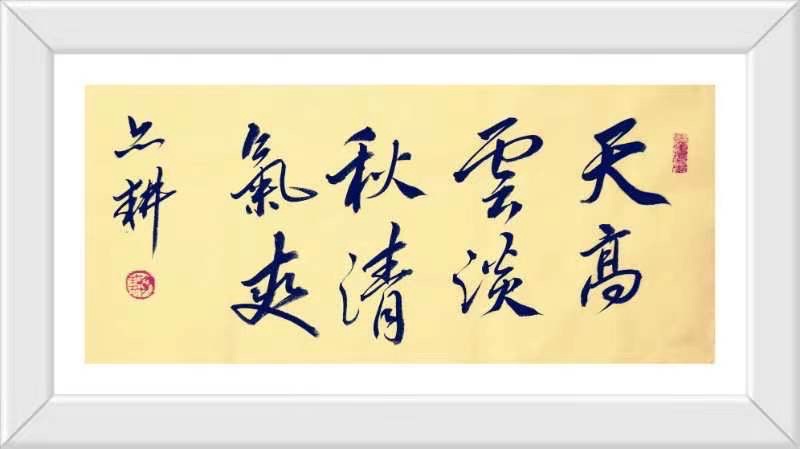 天高
雲淡
秋清
氣爽
耕